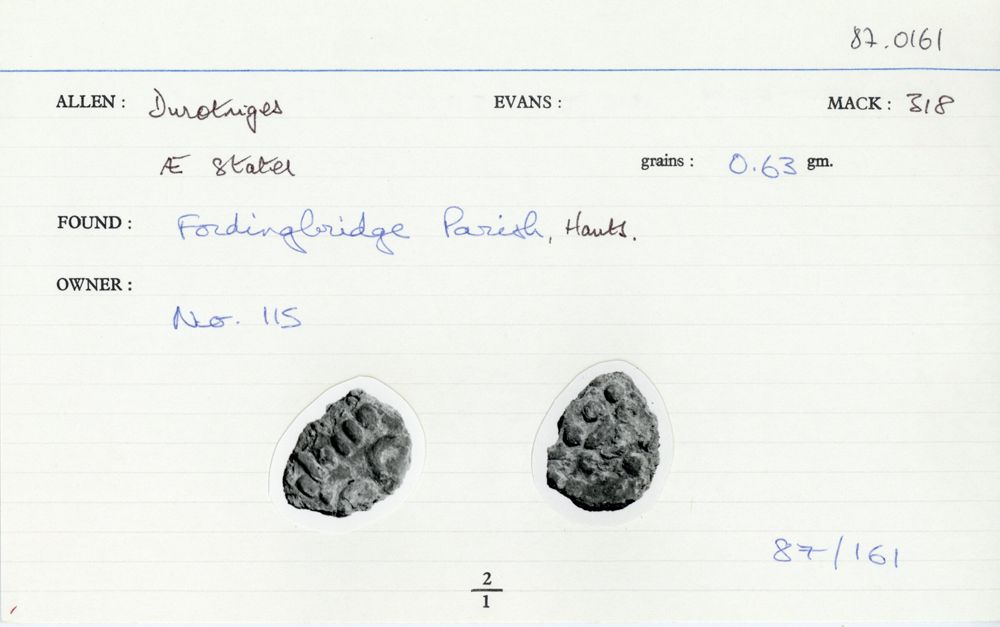 87.0161
ALLEN: Durotriges EVANS: MACK: 318
Æ Stater grains: 0.63 gm.
FOUND: Fordingbridge Parish, Hants.
OWNER:
No. 115
87/161
2
1